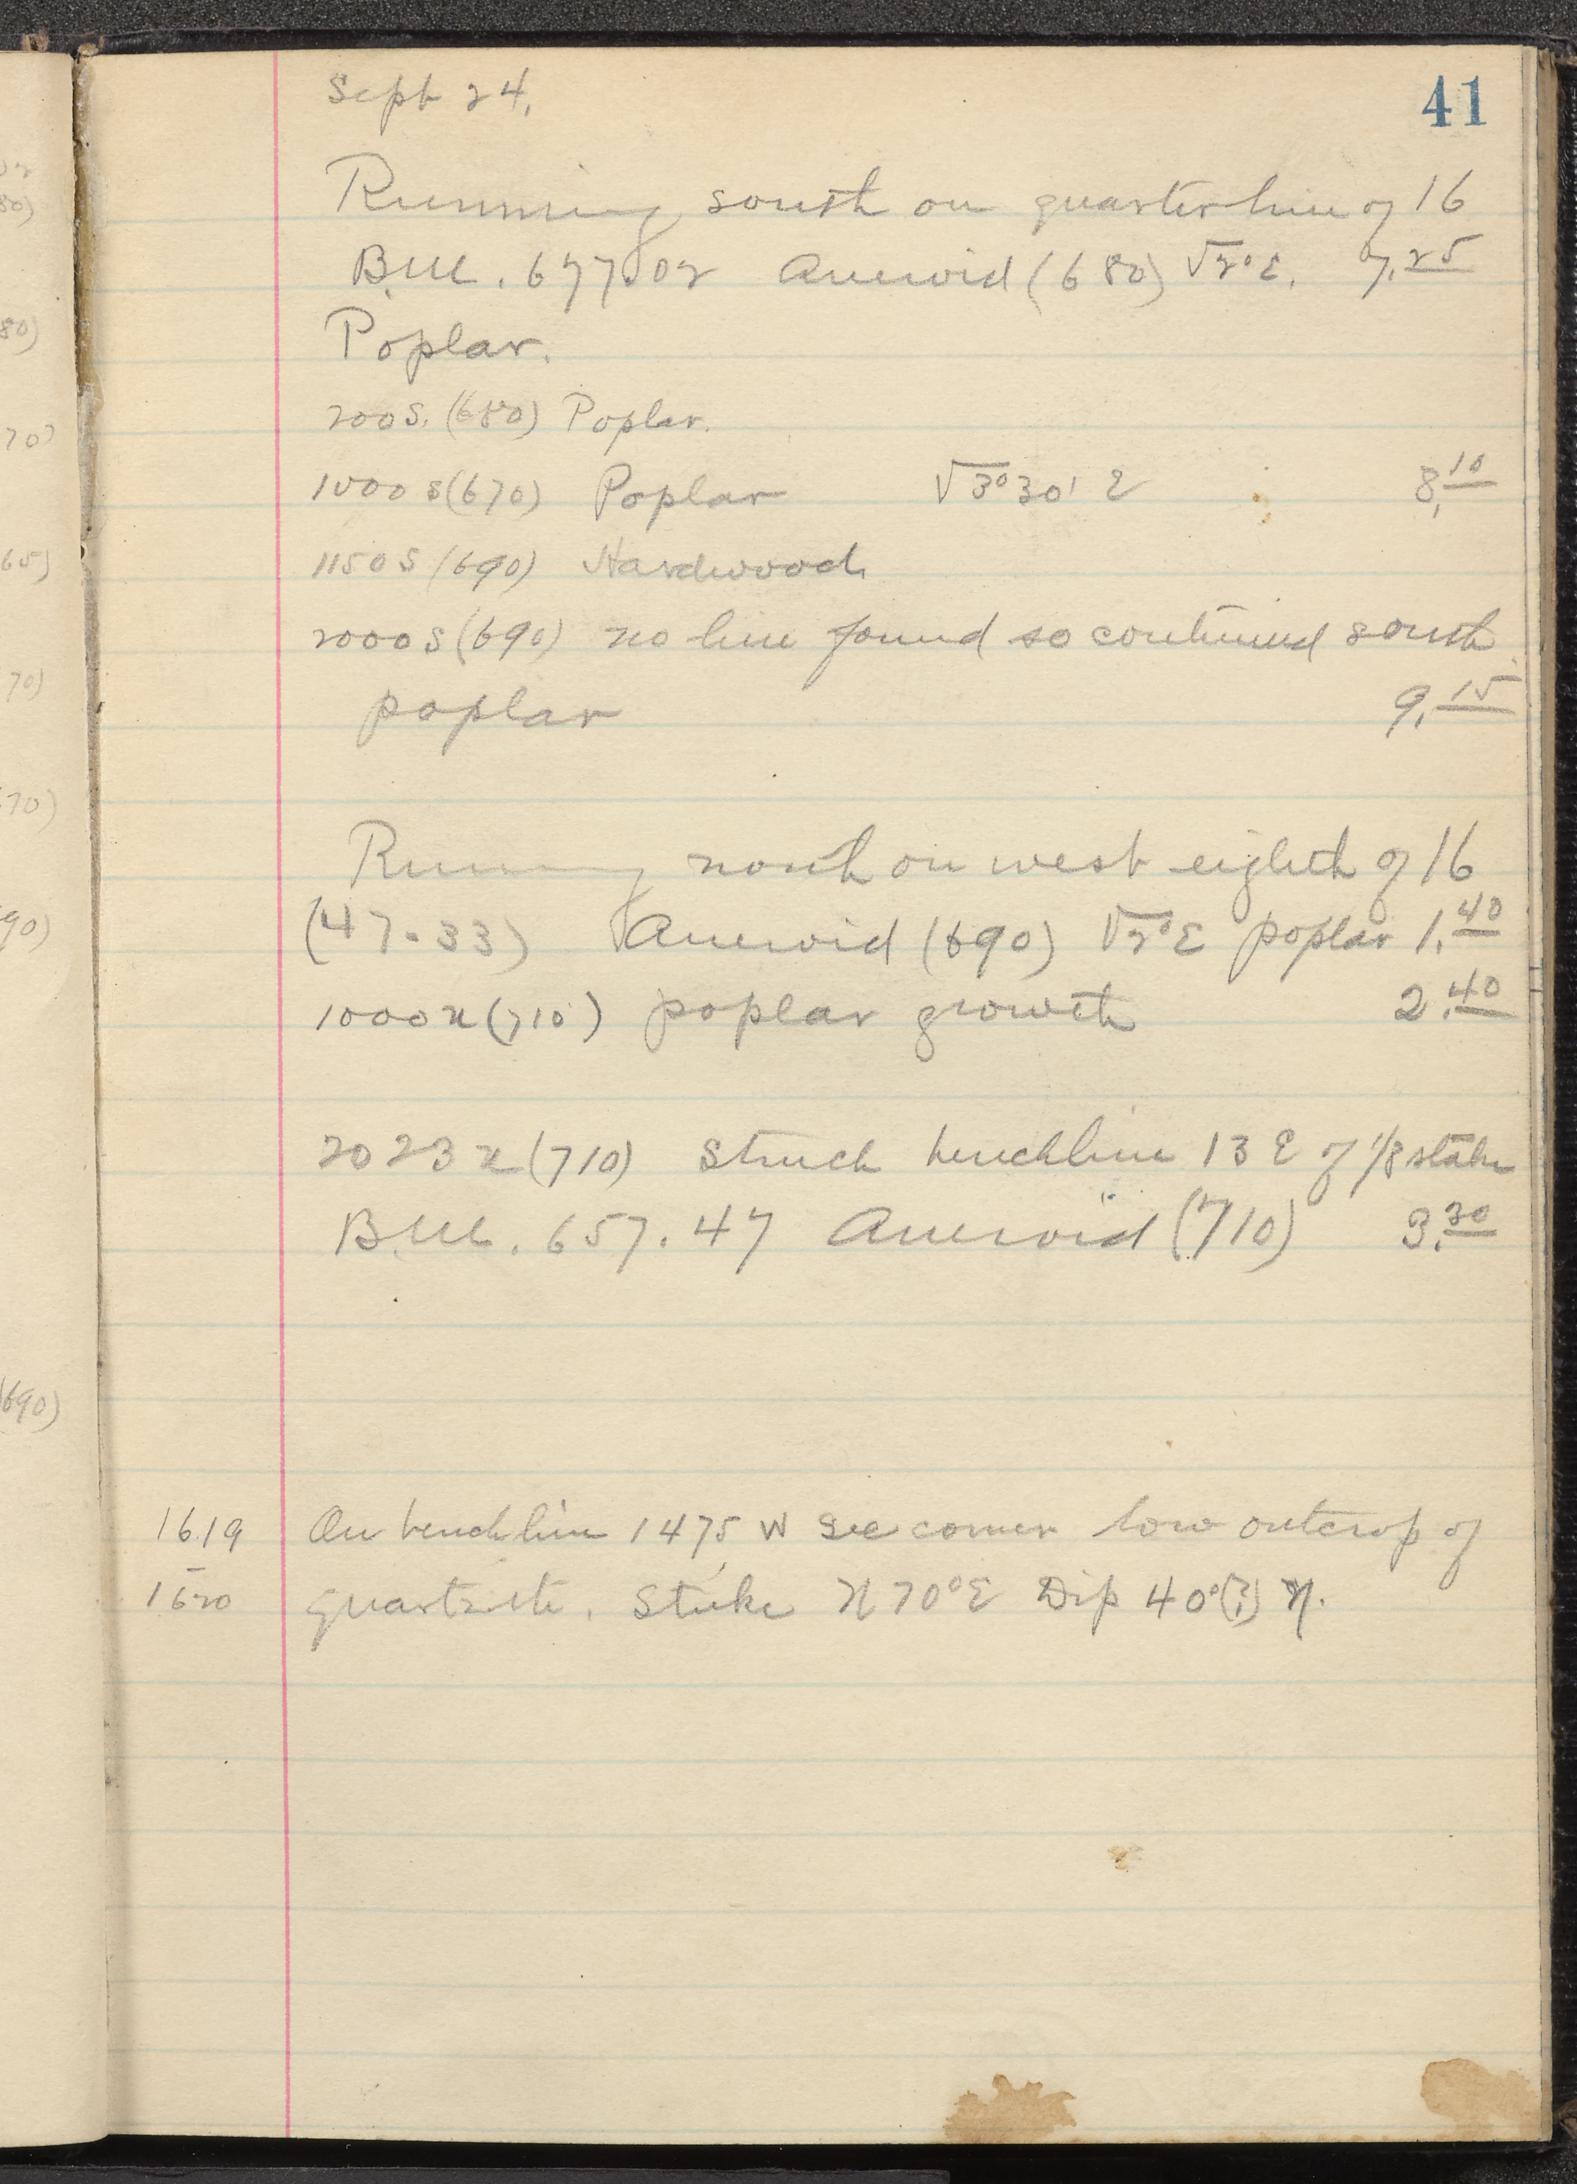 41
Sept 24.
Running south on quarter line of 16
B.M. 677.02 Aneroid (680) √2°E. 7.25
Poplar.
200 S. (680) Poplar.
1000 S (670) Poplar √3°30' E 8.10
1150 S (690) Hardwood
2000 S (690) no line found so continued south
poplar 9.15
Running north on west eighth of 16
(47-33) Aneroid (690) √2°E poplar 1.40
1000 N (710) poplar growth 2.40
2023 N (710) Struck benchline 13 E of 1/8 stake
B.M. 657.47 Aneroid (710) 3.30
1619 On benchline 1475 W Sec corner low outcrop of
1620 quartzite. Strike N 70°E Dip 40°(?) N.
02
80)
80)
70)
65)
70)
70)
90)
(690)